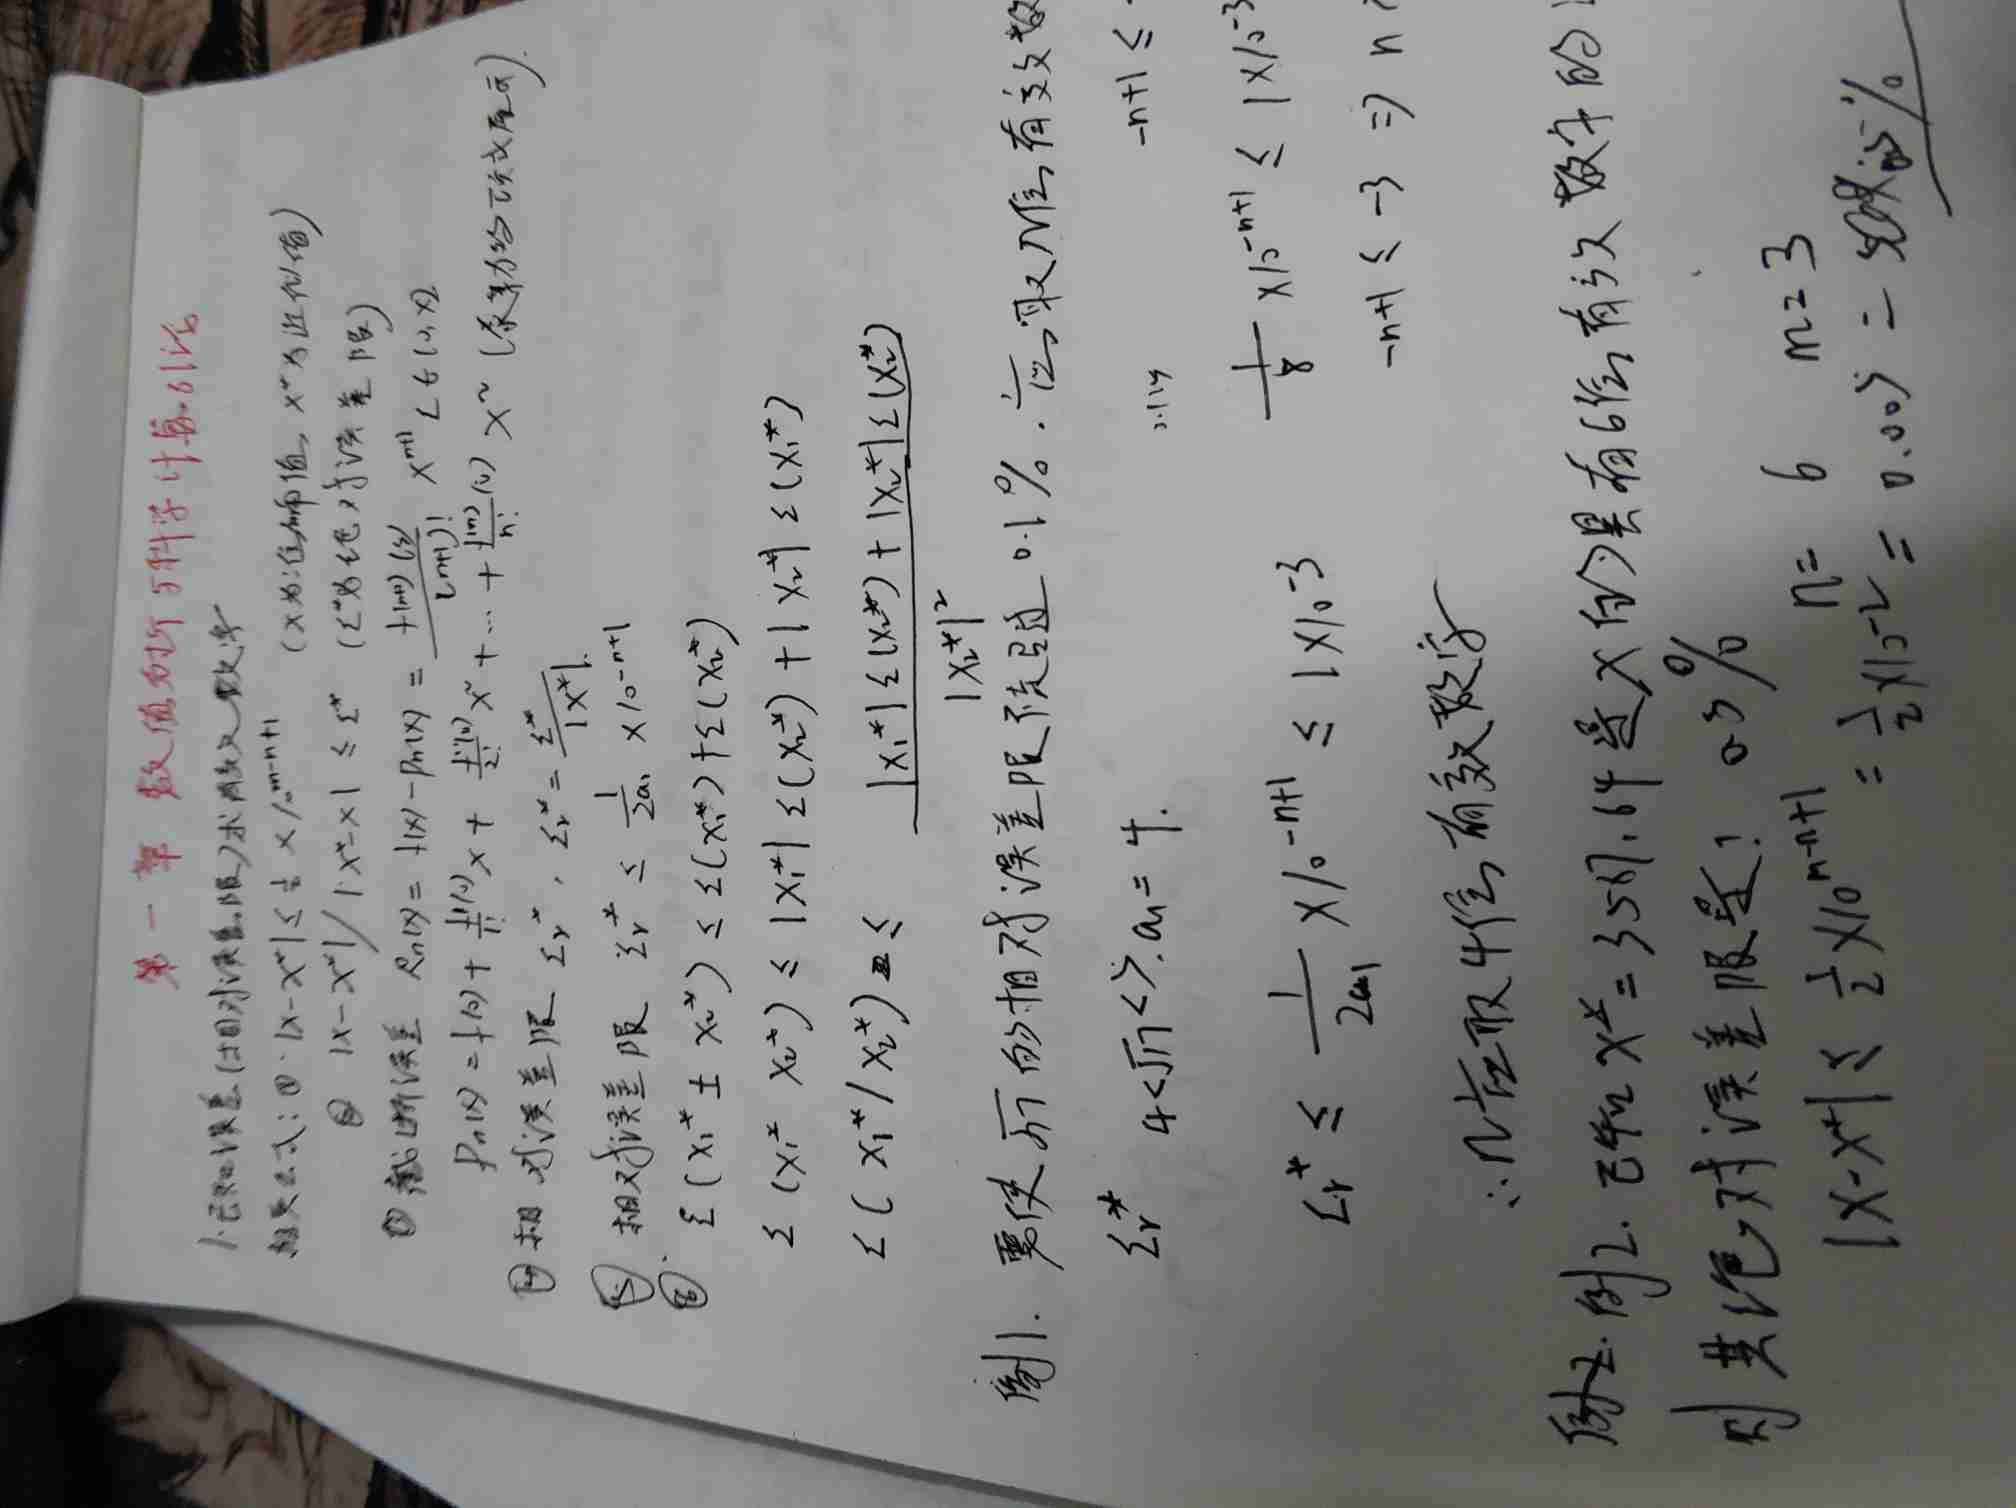 第一章 数值分析与科学计算引论
1.已知误差(相对误差限)求有效数字
相关公式:① |x-x*| ≤ ½ ×10^{m-n+1} (x为准确值, x*为近似值)
② |x-x*| / |x*-x| ≤ ε* (ε*为绝对误差限)
③ 截断误差 Rn(x) = f(x)-Pn(x) = \frac{f^{(n+1)}(ξ)}{(n+1)!} x^{n+1} ξ∈(0,x)
Pn(x) = f(0) + \frac{f'(0)}{1!}x + \frac{f''(0)}{2!}x² + … + \frac{f^{(n)}(0)}{n!} x^n
④ 相对误差限 εr*, εr* = \frac{ε*}{|x*|}.
⑤ 相对误差限 εr* ≤ \frac{1}{2a₁} ×10^{-n+1}
⑥. ε(x₁* ± x₂*) ≤ ε(x₁*)+ε(x₂*)
ε(x₁* x₂*) ≤ |x₁*| ε(x₂*) + |x₂*| ε(x₁*)
ε(x₁*/x₂*) ≤ \frac{|x₁*| ε(x₂*) + |x₂*| ε(x₂*)}{|x₂*|²}
例1. 要使√17的相对误差限不超过0.1%. 应取几位有效数
εr* 4<√17<5. a₁=4. -n+1 ≤
εr* ≤ \frac{1}{2a₁} ×10^{-n+1} ≤ 1×10^{-3} \frac{1}{8} ×10^{-n+1} ≤ 1×10^{-3}
-n+1 ≤ -3 ⇒ n
∴ 应取4位有效数字
例2. 已知 x*=3587.64是x的具有6位有效数字的
则其绝对误差限是! 0.5%
n= 6 m=3
|x-x*| ≤ ½×10^{m-n+1} = ½×10^{-2} = 0.005 = 0.5%